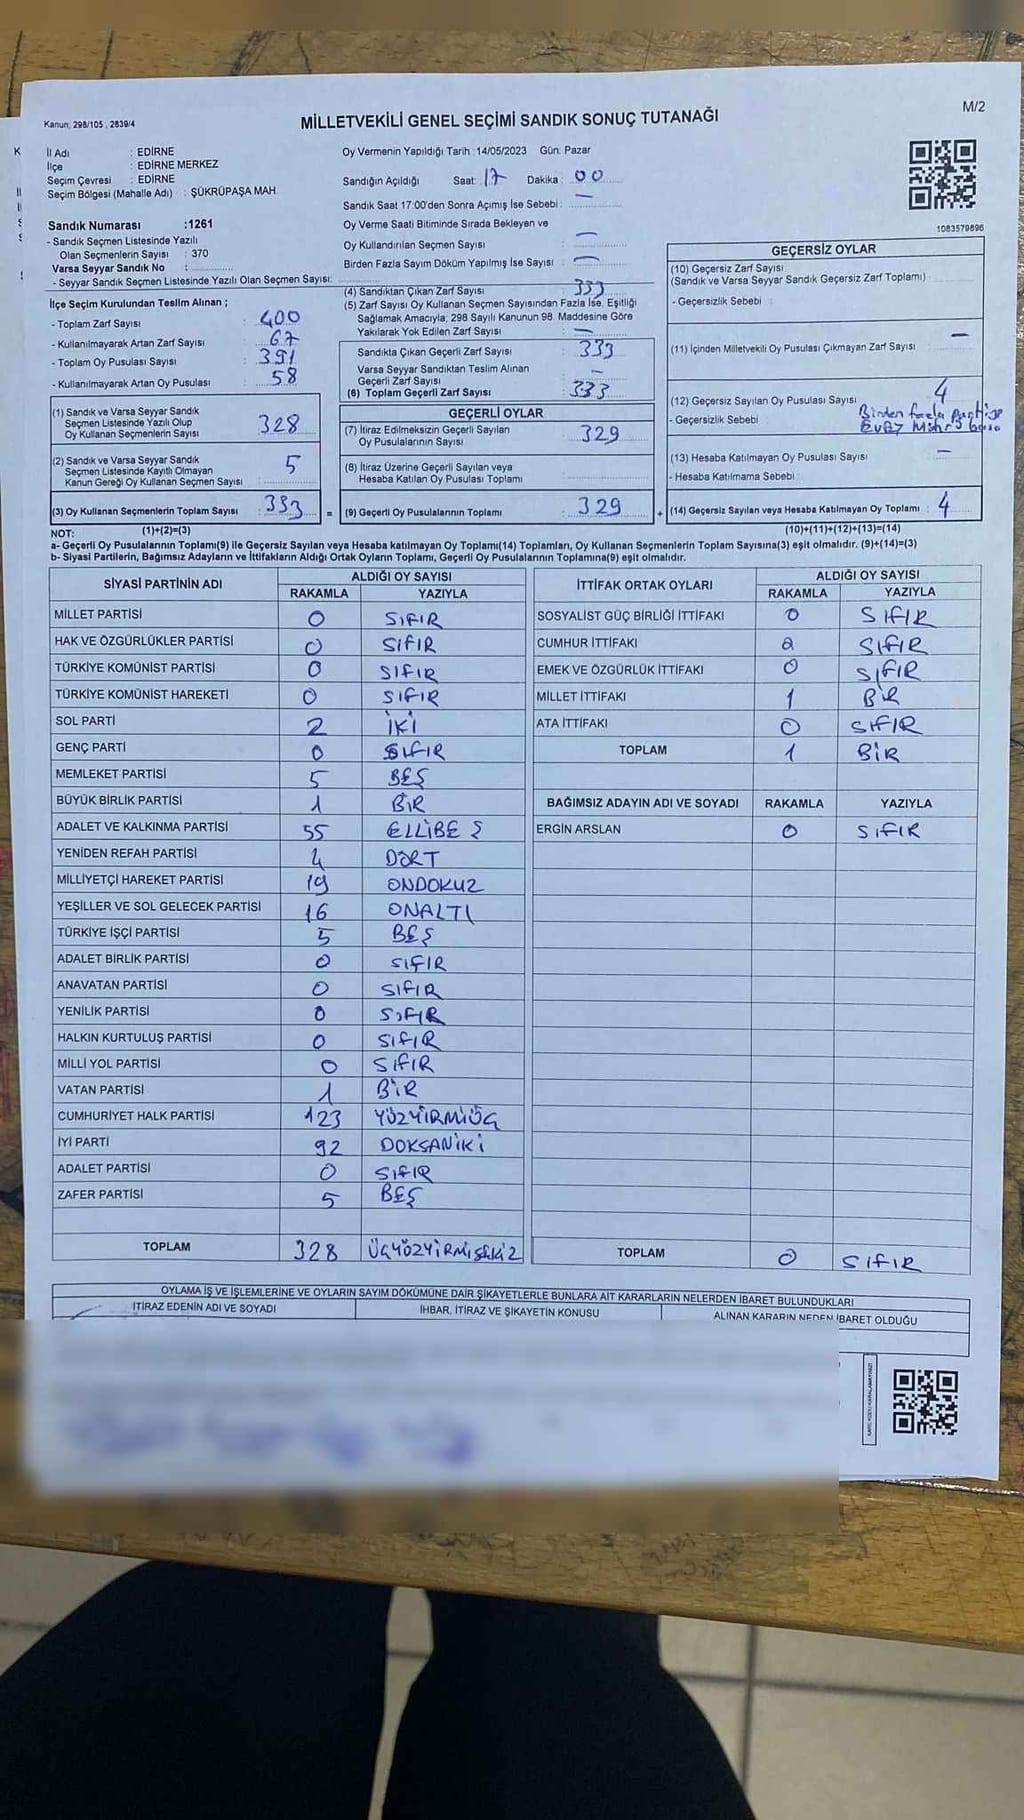 M/2
Kanun, 298/105 , 2839/4
MİLLETVEKİLİ GENEL SEÇİMİ SANDIK SONUÇ TUTANAĞI
İl Adı : EDİRNE
İlçe : EDİRNE MERKEZ
Seçim Çevresi : EDİRNE
Seçim Bölgesi (Mahalle Adı) : ŞÜKRÜPAŞA MAH.
Sandık Numarası :1261
- Sandık Seçmen Listesinde Yazılı
Olan Seçmenlerin Sayısı : 370
Varsa Seyyar Sandık No :
- Seyyar Sandık Seçmen Listesinde Yazılı Olan Seçmen Sayısı:
Oy Vermenin Yapıldığı Tarih :14/05/2023 Gün: Pazar
Sandığın Açıldığı Saat: 17 Dakika : 00
Sandık Saat 17:00'den Sonra Açımış İse Sebebi : —
Oy Verme Saati Bitiminde Sırada Bekleyen ve
Oy Kullandırılan Seçmen Sayısı : —
Birden Fazla Sayım Döküm Yapılmış İse Sayısı : —
1083579896
İlçe Seçim Kurulundan Teslim Alınan ;
- Toplam Zarf Sayısı : 400
- Kullanılmayarak Artan Zarf Sayısı : 67
- Toplam Oy Pusulası Sayısı : 391
- Kullanılmayarak Artan Oy Pusulası : 58
(1) Sandık ve Varsa Seyyar Sandık
Seçmen Listesinde Yazılı Olup
Oy Kullanan Seçmenlerin Sayısı 328
(2) Sandık ve Varsa Seyyar Sandık
Seçmen Listesinde Kayıtlı Olmayan
Kanun Gereği Oy Kullanan Seçmen Sayısı 5
(3) Oy Kullanan Seçmenlerin Toplam Sayısı : 333 =
(4) Sandıktan Çıkan Zarf Sayısı : 333
(5) Zarf Sayısı Oy Kullanan Seçmen Sayısından Fazla İse, Eşitliği
Sağlamak Amacıyla; 298 Sayılı Kanunun 98. Maddesine Göre
Yakılarak Yok Edilen Zarf Sayısı : —
Sandıkta Çıkan Geçerli Zarf Sayısı : 333
Varsa Seyyar Sandıktan Teslim Alınan
Geçerli Zarf Sayısı : —
(6) Toplam Geçerli Zarf Sayısı : 333
GEÇERLİ OYLAR
(7) İtiraz Edilmeksizin Geçerli Sayılan
Oy Pusulalarının Sayısı : 329
(8) İtiraz Üzerine Geçerli Sayılan veya
Hesaba Katılan Oy Pusulası Toplamı :
(9) Geçerli Oy Pusulalarının Toplamı : 329 +
GEÇERSİZ OYLAR
(10) Geçersiz Zarf Sayısı
(Sandık ve Varsa Seyyar Sandık Geçersiz Zarf Toplamı) :
- Geçersizlik Sebebi :
(11) İçinden Milletvekili Oy Pusulası Çıkmayan Zarf Sayısı : —
(12) Geçersiz Sayılan Oy Pusulası Sayısı : 4
- Geçersizlik Sebebi : Birden fazla
(13) Hesaba Katılmayan Oy Pusulası Sayısı : —
- Hesaba Katılmama Sebebi :
(14) Geçersiz Sayılan veya Hesaba Katılmayan Oy Toplamı : 4
NOT: (1)+(2)=(3) (10)+(11)+(12)+(13)=(14)
a- Geçerli Oy Pusulalarının Toplamı(9) ile Geçersiz Sayılan veya Hesaba katılmayan Oy Toplamı(14) Toplamları, Oy Kullanan Seçmenlerin Toplam Sayısına(3) eşit olmalıdır. (9)+(14)=(3)
b- Siyasi Partilerin, Bağımsız Adayların ve İttifakların Aldığı Ortak Oyların Toplamı, Geçerli Oy Pusulalarının Toplamına(9) eşit olmalıdır.
SİYASİ PARTİNİN ADI ALDIĞI OY SAYISI
RAKAMLA YAZIYLA
MİLLET PARTİSİ 0 SIFIR
HAK VE ÖZGÜRLÜKLER PARTİSİ 0 SIFIR
TÜRKİYE KOMÜNİST PARTİSİ 0 SIFIR
TÜRKİYE KOMÜNİST HAREKETİ 0 SIFIR
SOL PARTİ 2 İKİ
GENÇ PARTİ 0 SIFIR
MEMLEKET PARTİSİ 5 BEŞ
BÜYÜK BİRLİK PARTİSİ 1 BİR
ADALET VE KALKINMA PARTİSİ 55 ELLİBEŞ
YENİDEN REFAH PARTİSİ 4 DÖRT
MİLLİYETÇİ HAREKET PARTİSİ 19 ONDOKUZ
YEŞİLLER VE SOL GELECEK PARTİSİ 16 ONALTI
TÜRKİYE İŞÇİ PARTİSİ 5 BEŞ
ADALET BİRLİK PARTİSİ 0 SIFIR
ANAVATAN PARTİSİ 0 SIFIR
YENİLİK PARTİSİ 0 SIFIR
HALKIN KURTULUŞ PARTİSİ 0 SIFIR
MİLLİ YOL PARTİSİ 0 SIFIR
VATAN PARTİSİ 1 BİR
CUMHURİYET HALK PARTİSİ 123 YÜZYİRMİÜÇ
İYİ PARTİ 92 DOKSANİKİ
ADALET PARTİSİ 0 SIFIR
ZAFER PARTİSİ 5 BEŞ
TOPLAM 328 ÜÇYÜZYİRMİSEKİZ
İTTİFAK ORTAK OYLARI ALDIĞI OY SAYISI
RAKAMLA YAZIYLA
SOSYALİST GÜÇ BİRLİĞİ İTTİFAKI 0 SIFIR
CUMHUR İTTİFAKI 0 SIFIR
EMEK VE ÖZGÜRLÜK İTTİFAKI 0 SIFIR
MİLLET İTTİFAKI 1 BİR
ATA İTTİFAKI 0 SIFIR
TOPLAM 1 BİR
BAĞIMSIZ ADAYIN ADI VE SOYADI RAKAMLA YAZIYLA
ERGİN ARSLAN 0 SIFIR
TOPLAM 0 SIFIR
OYLAMA İŞ VE İŞLEMLERİNE VE OYLARIN SAYIM DÖKÜMÜNE DAİR ŞİKAYETLERLE BUNLARA AİT KARARLARIN NELERDEN İBARET BULUNDUKLARI
İTİRAZ EDENİN ADI VE SOYADI İHBAR, İTİRAZ VE ŞİKAYETİN KONUSU ALINAN KARARIN NEDEN İBARET OLDUĞU